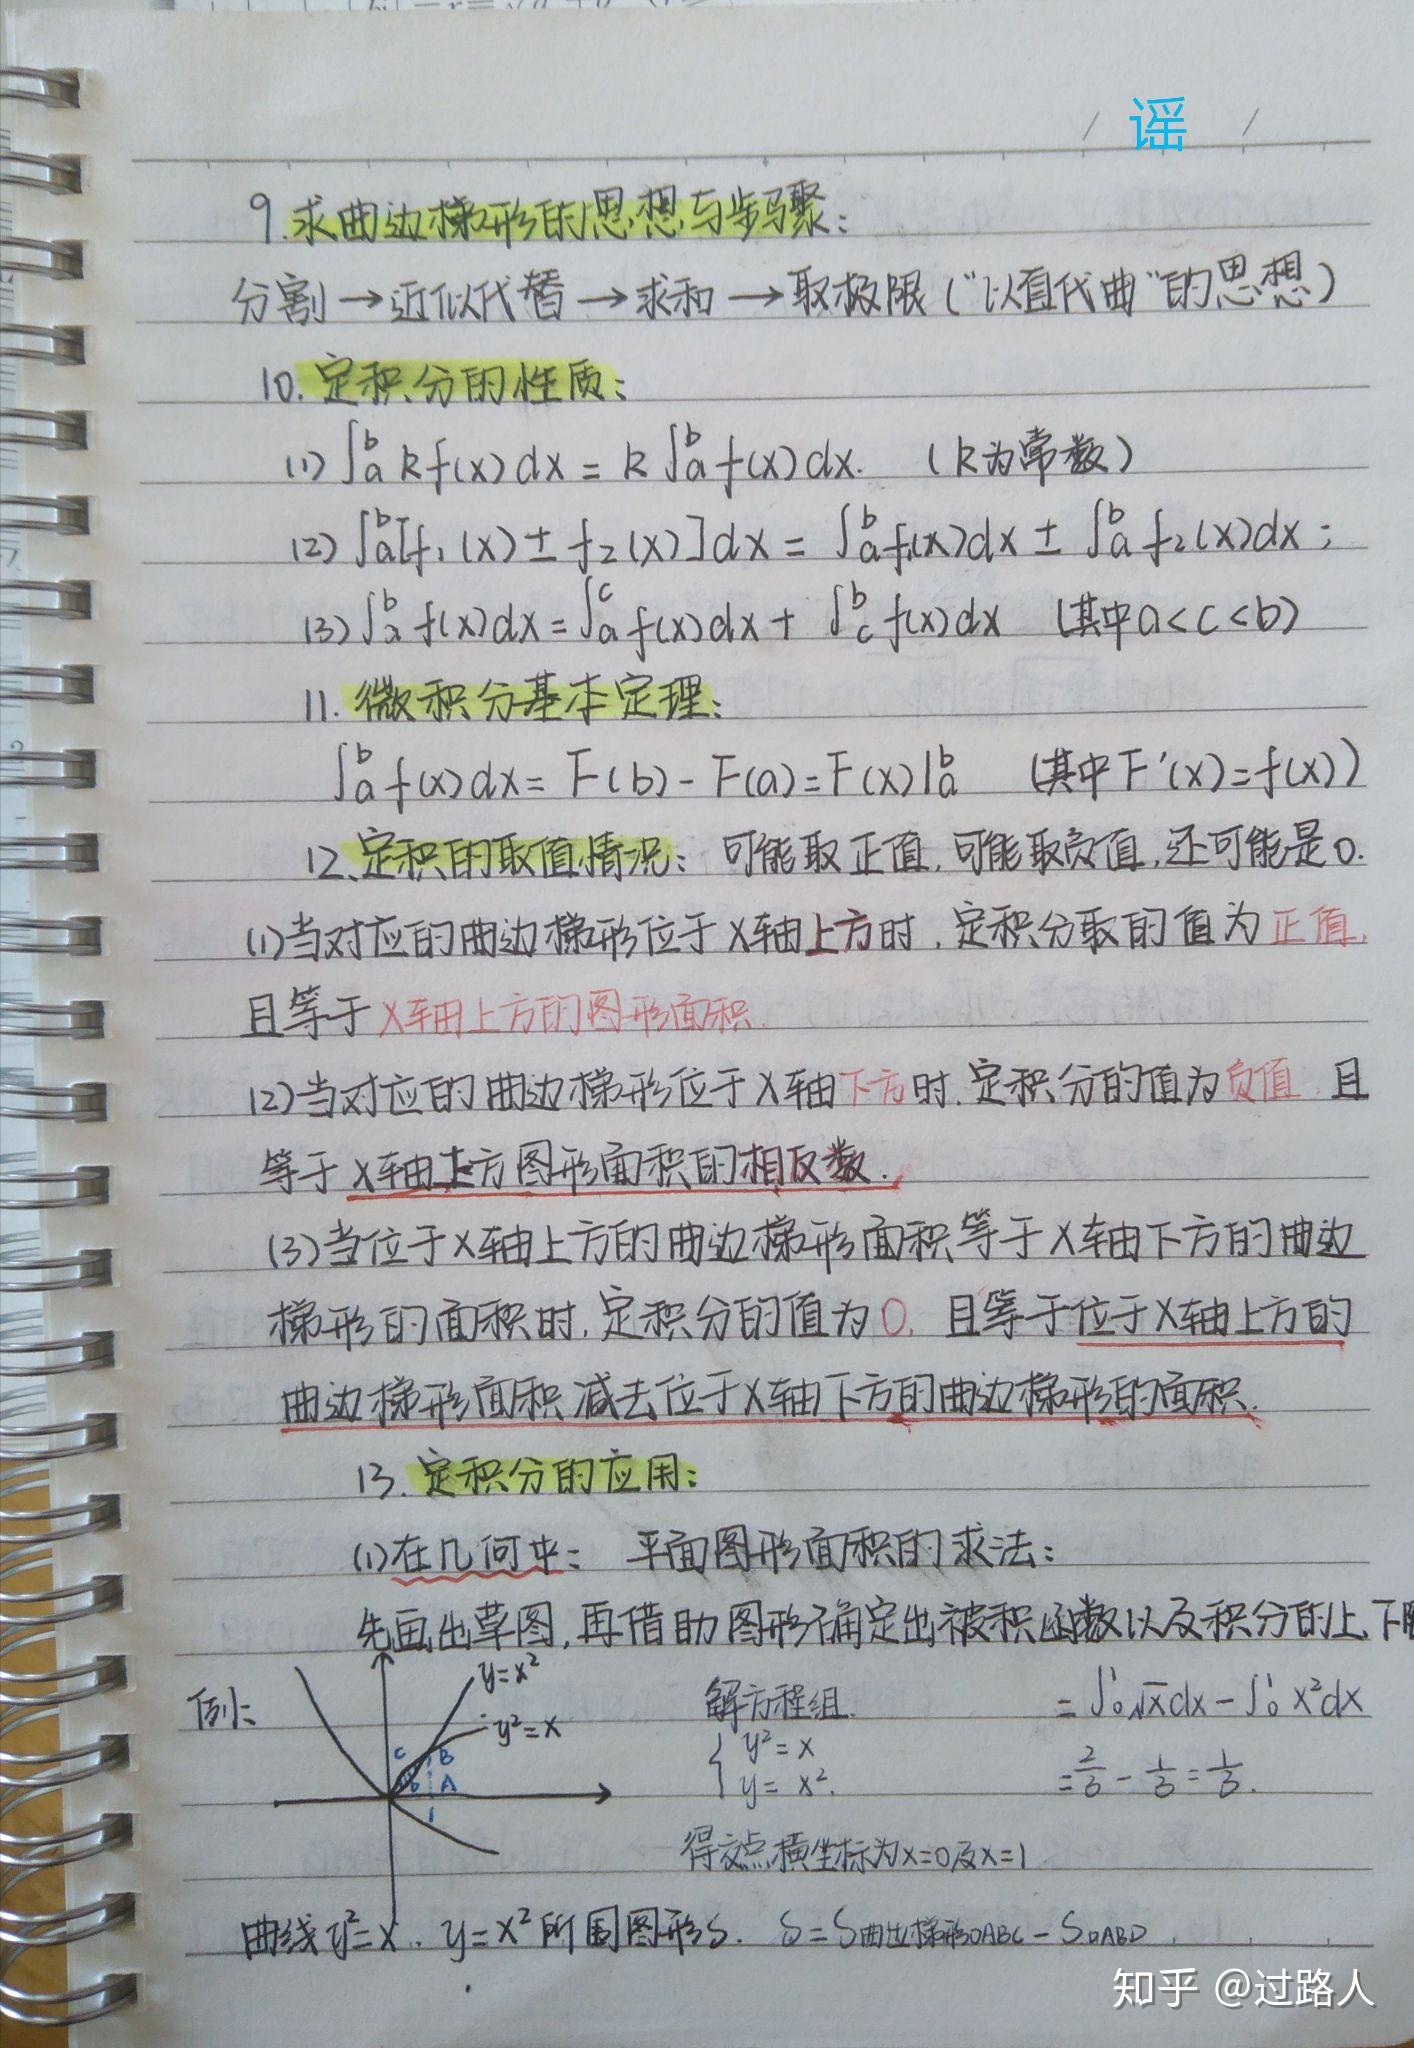 谣
9.求曲边梯形的思想与步骤:
分割→近似代替→求和→取极限("以直代曲"的思想)
10.定积分的性质:
(1)∫ₐᵇkf(x)dx=k∫ₐᵇf(x)dx. (k为常数)
(2)∫ₐᵇ[f₁(x)±f₂(x)]dx=∫ₐᵇf₁(x)dx±∫ₐᵇf₂(x)dx;
(3)∫ₐᵇf(x)dx=∫ₐᶜf(x)dx+∫꜀ᵇf(x)dx (其中a<c<b)
11.微积分基本定理:
∫ₐᵇf(x)dx=F(b)-F(a)=F(x)|ₐᵇ (其中F'(x)=f(x))
12、定积的取值情况:可能取正值,可能取负值,还可能是0.
(1)当对应的曲边梯形位于x轴上方时,定积分取的值为正值,
且等于x轴上方的图形面积.
(2)当对应的曲边梯形位于x轴下方时,定积分的值为负值.且
等于x轴上方图形面积的相反数.
(3)当位于x轴上方的曲边梯形面积等于x轴下方的曲边
梯形的面积时,定积分的值为0,且等于位于x轴上方的
曲边梯形面积减去位于x轴下方的曲边梯形的面积.
13.定积分的应用:
(1)在几何中: 平面图形面积的求法:
先画出草图,再借助图形确定出被积函数以及积分的上、下
例:
y=x²
y²=x
C B
D A
1
解方程组.
y²=x
y=x².
得交点横坐标为x=0及x=1
=∫₀¹√xdx-∫₀¹x²dx
=2/3-1/3=1/3.
曲线y²=x.y=x²所围图形S. S=S曲边梯形OABC-SOABD
知乎 @过路人